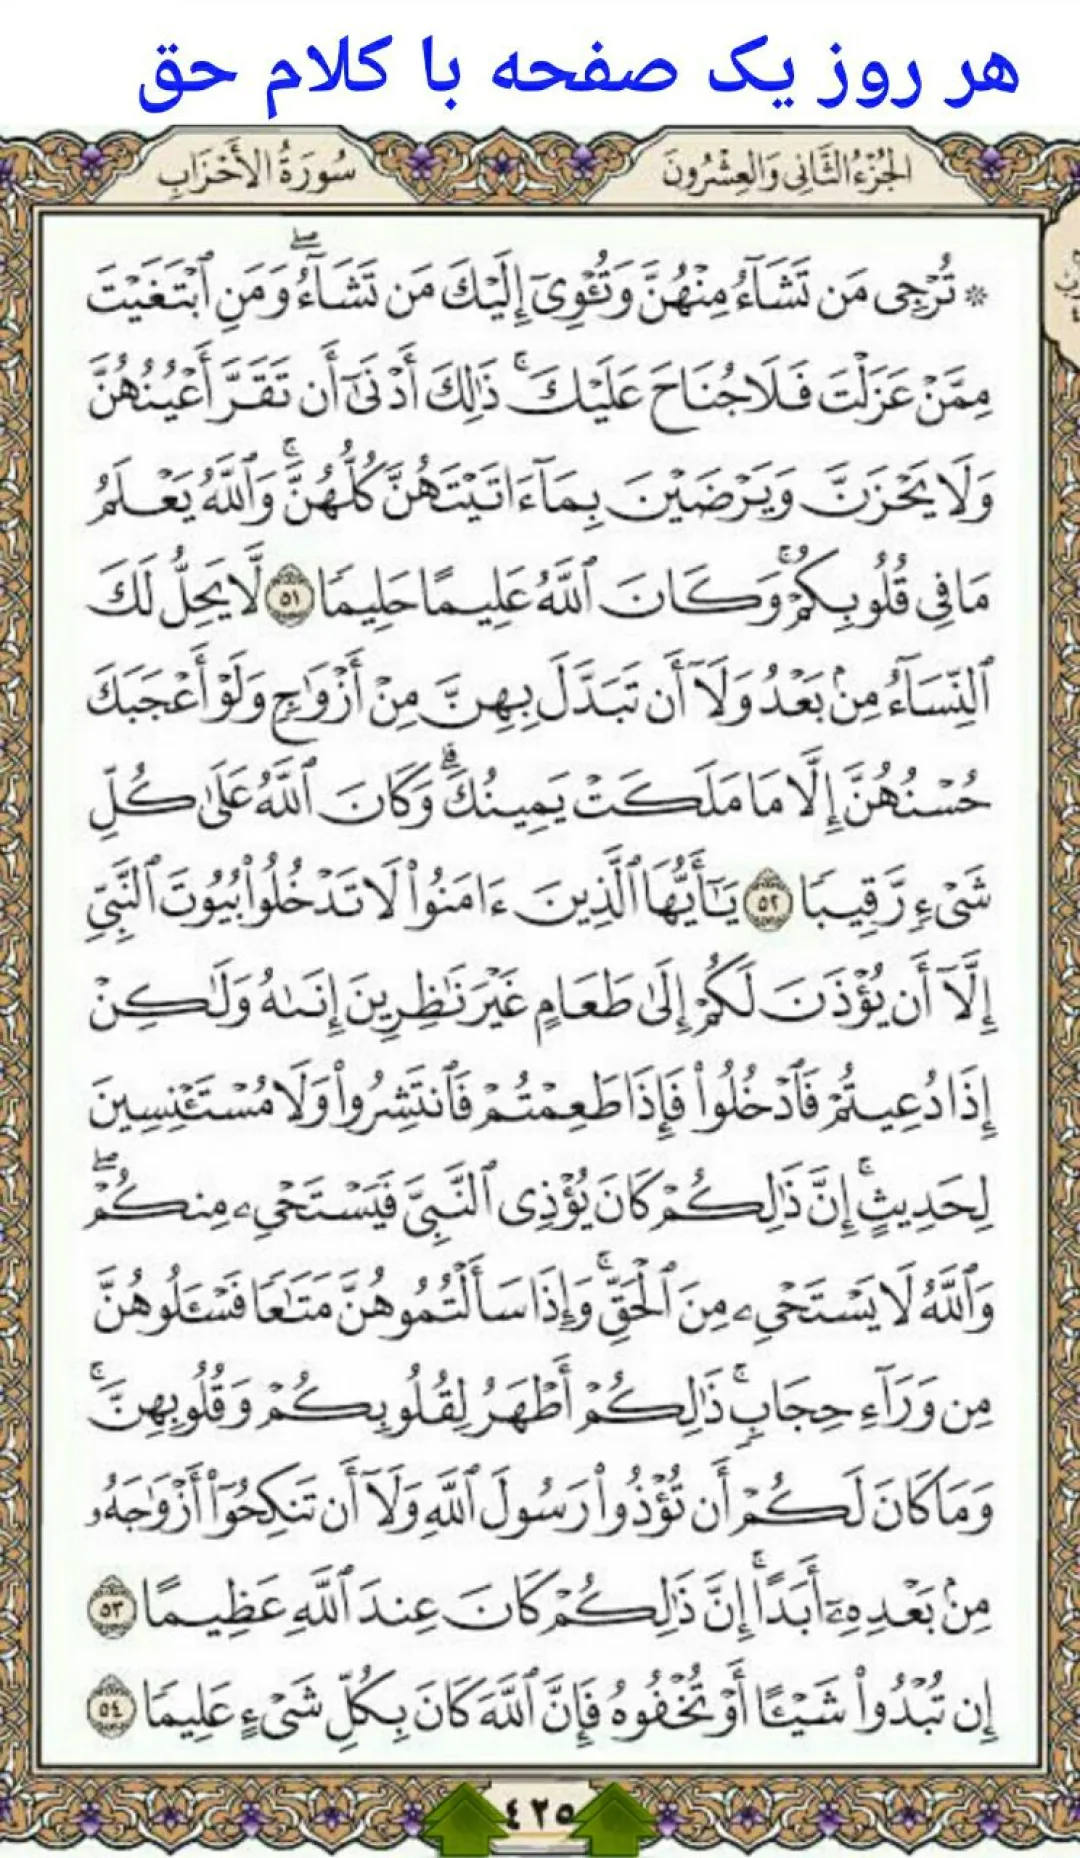 هر روز یک صفحه با کلام حق
الجُزْءُ الثَّانِی وَالعِشْرُونَ
سُورَةُ الأَحْزَابِ
۞ تُرْجِى مَن تَشَآءُ مِنْهُنَّ وَتُـْٔوِىٓ إِلَيْكَ مَن تَشَآءُۖ وَمَنِ ٱبْتَغَيْتَ
مِمَّنْ عَزَلْتَ فَلَا جُنَاحَ عَلَيْكَۚ ذَٰلِكَ أَدْنَىٰٓ أَن تَقَرَّ أَعْيُنُهُنَّ
وَلَا يَحْزَنَّ وَيَرْضَيْنَ بِمَآ ءَاتَيْتَهُنَّ كُلُّهُنَّۚ وَٱللَّهُ يَعْلَمُ
مَا فِى قُلُوبِكُمْۚ وَكَانَ ٱللَّهُ عَلِيمًا حَلِيمًا ٥١ لَّا يَحِلُّ لَكَ
ٱلنِّسَآءُ مِنۢ بَعْدُ وَلَآ أَن تَبَدَّلَ بِهِنَّ مِنْ أَزْوَٰجٍ وَلَوْ أَعْجَبَكَ
حُسْنُهُنَّ إِلَّا مَا مَلَكَتْ يَمِينُكَۗ وَكَانَ ٱللَّهُ عَلَىٰ كُلِّ
شَىْءٍ رَّقِيبًا ٥٢ يَـٰٓأَيُّهَا ٱلَّذِينَ ءَامَنُوا۟ لَا تَدْخُلُوا۟ بُيُوتَ ٱلنَّبِىِّ
إِلَّآ أَن يُؤْذَنَ لَكُمْ إِلَىٰ طَعَامٍ غَيْرَ نَـٰظِرِينَ إِنَىٰهُ وَلَـٰكِنْ
إِذَا دُعِيتُمْ فَٱدْخُلُوا۟ فَإِذَا طَعِمْتُمْ فَٱنتَشِرُوا۟ وَلَا مُسْتَـْٔنِسِينَ
لِحَدِيثٍۚ إِنَّ ذَٰلِكُمْ كَانَ يُؤْذِى ٱلنَّبِىَّ فَيَسْتَحْىِۦ مِنكُمْۖ
وَٱللَّهُ لَا يَسْتَحْىِۦ مِنَ ٱلْحَقِّۚ وَإِذَا سَأَلْتُمُوهُنَّ مَتَـٰعًا فَسْـَٔلُوهُنَّ
مِن وَرَآءِ حِجَابٍۚ ذَٰلِكُمْ أَطْهَرُ لِقُلُوبِكُمْ وَقُلُوبِهِنَّۚ
وَمَا كَانَ لَكُمْ أَن تُؤْذُوا۟ رَسُولَ ٱللَّهِ وَلَآ أَن تَنكِحُوٓا۟ أَزْوَٰجَهُۥ
مِنۢ بَعْدِهِۦٓ أَبَدًاۚ إِنَّ ذَٰلِكُمْ كَانَ عِندَ ٱللَّهِ عَظِيمًا ٥٣
إِن تُبْدُوا۟ شَيْـًٔا أَوْ تُخْفُوهُ فَإِنَّ ٱللَّهَ كَانَ بِكُلِّ شَىْءٍ عَلِيمًا ٥٤
٤٢٥